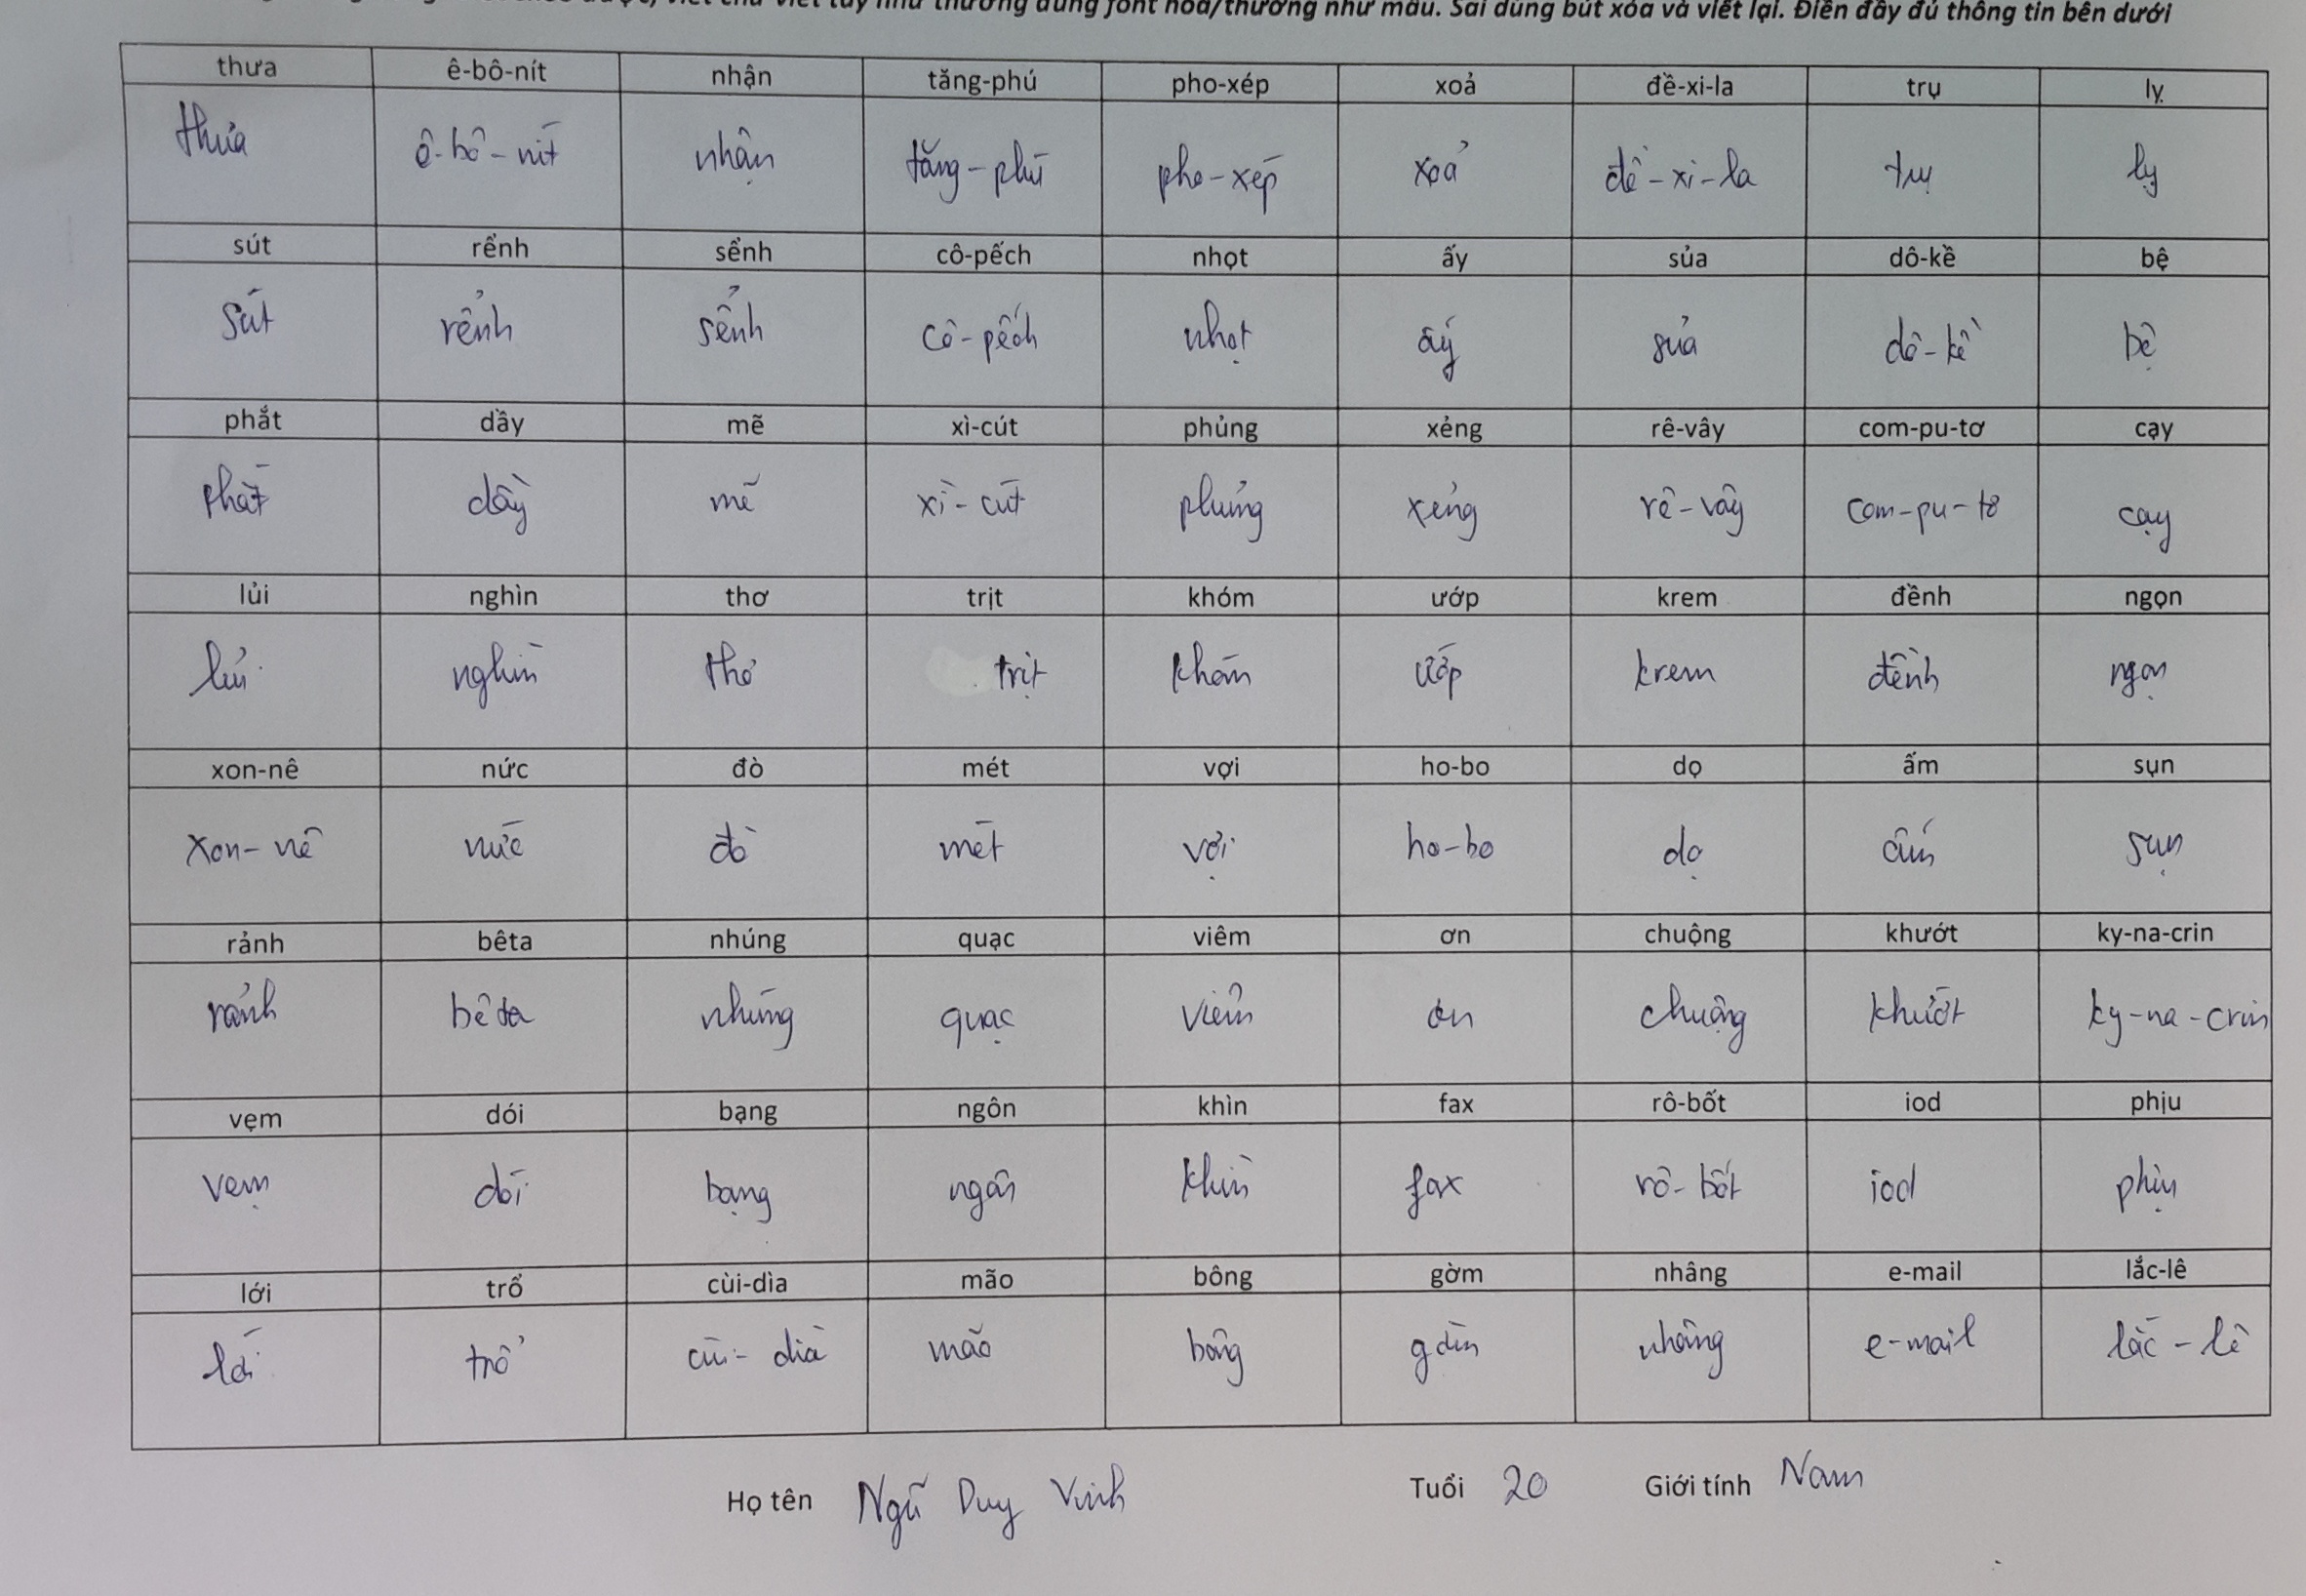 viết chữ viết tay như thường dùng font hoa/thường như mẫu. Sai dùng bút xóa và viết lại. Điền đầy đủ thông tin bên dưới
thưa ê-bô-nít nhận tăng-phú pho-xép xoả đề-xi-la trụ lỵ
thưa ê-bô-nít nhận tăng-phú pho-xép xoả đề-xi-la trụ lỵ
sút rểnh sểnh cô-pếch nhọt ấy sủa dô-kề bệ
sút rểnh sểnh cô-pếch nhọt ấy sủa dô-kề bệ
phắt dầy mẽ xì-cút phủng xẻng rê-vây com-pu-tơ cạy
phắt dầy mẽ xì-cút phủng xẻng rê-vây com-pu-tơ cạy
lủi nghìn thơ trịt khóm ướp krem đềnh ngọn
lủi nghìn thơ trịt khóm ướp krem đềnh ngọn
xon-nê nức đò mét vợi ho-bo dọ ấm sụn
xon-nê nức đò mét vợi ho-bo dọ ấm sụn
rảnh bêta nhúng quạc viêm ơn chuộng khướt ky-na-crin
rảnh bêta nhúng quạc viêm ơn chuộng khướt ky-na-crin
vẹm dói bạng ngôn khìn fax rô-bốt iod phịu
vẹm dói bạng ngôn khìn fax rô-bốt iod phịu
lới trổ cùi-dìa mão bông gờm nhâng e-mail lắc-lê
lới trổ cùi-dìa mão bông gờm nhâng e-mail lắc-lê
Họ tên Ngũ Duy Vinh Tuổi 20 Giới tính Nam